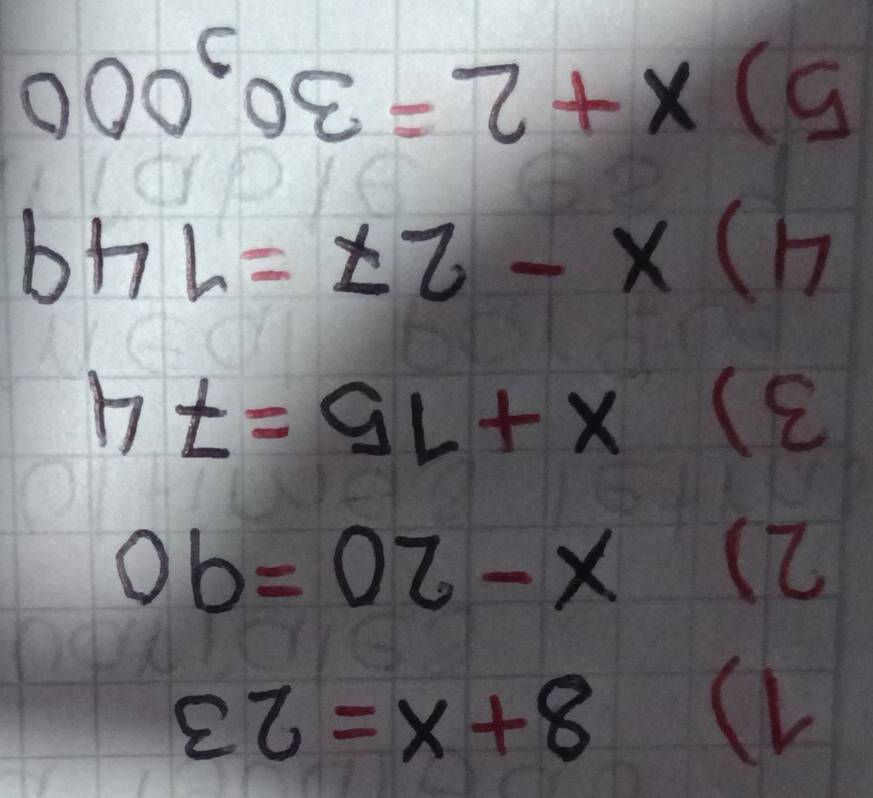 1) 8+x=23
2) x-20=90
3) x+15=74
4) x-27=149
5) x+2=30,000